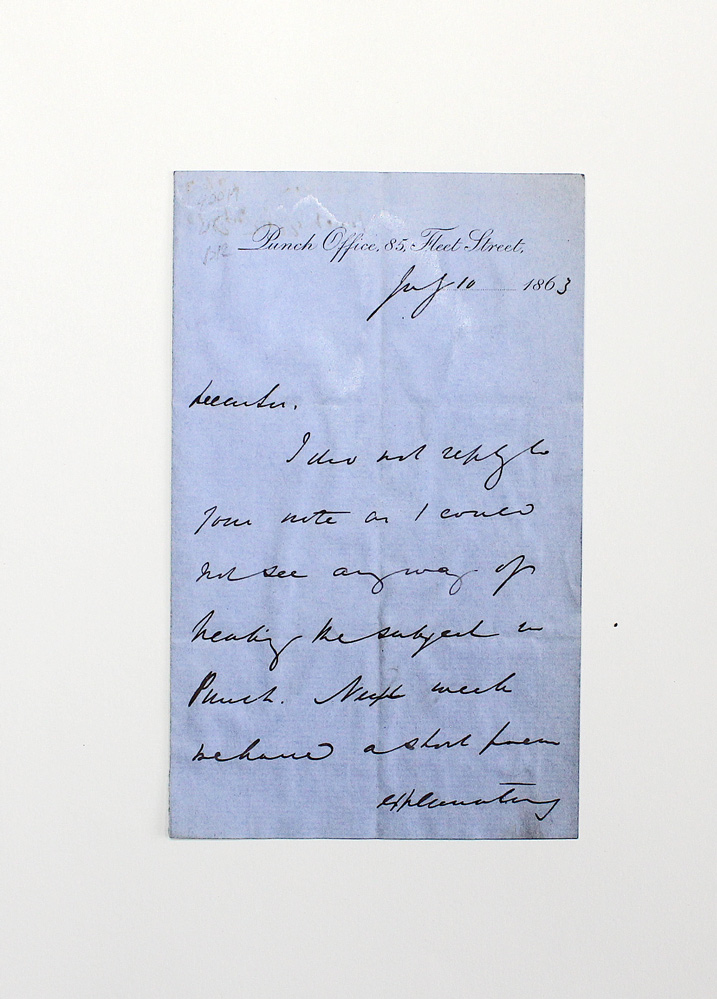 Punch Office, 85, Fleet Street,
July 10 1863
Dear Sir.
I did not reply to
your note as I could
not see any way of
treating the subject in
Punch. Next week
we have a short poem
explanatory